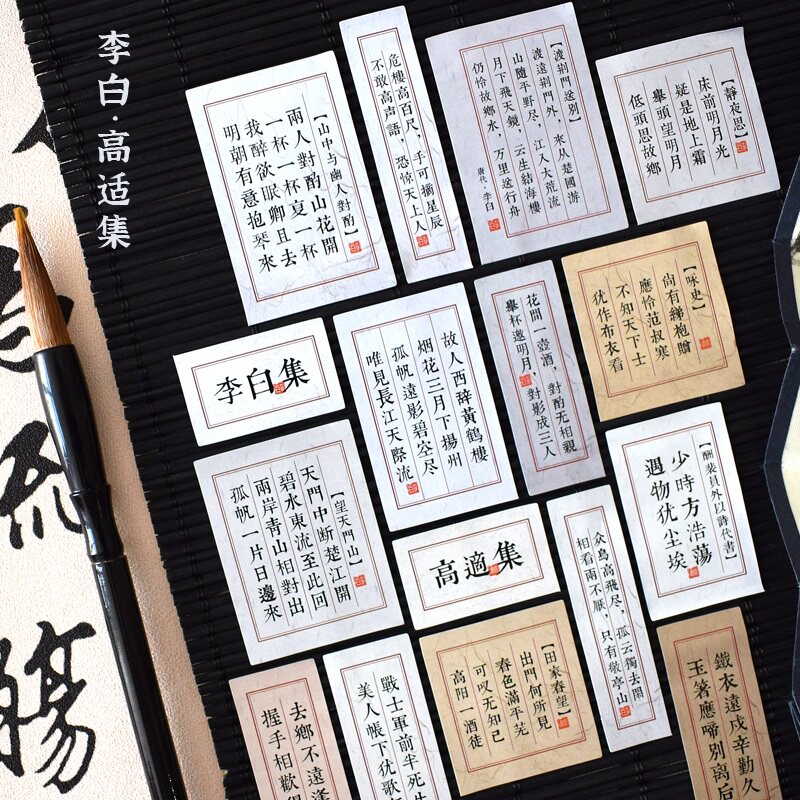 李白·高适集
【山中与幽人對酌】
兩人對酌山花開
一杯一杯复一杯
我醉欲眠卿且去
明朝有意抱琴來
危樓高百尺，手可摘星辰
不敢高声語，恐惊天上人
【渡荆門送別】
渡遠荆門外，來从楚國游
山隨平野尽，江入大荒流
月下飛天鏡，云生結海樓
仍怜故鄉水，万里送行舟
唐代·李白
【靜夜思】
床前明月光
疑是地上霜
舉頭望明月
低頭思故鄉
李白集
故人西辞黄鶴樓
烟花三月下揚州
孤帆遠影碧空尽
唯見長江天際流
花間一壺酒，對酌无相親
舉杯邀明月，對影成三人
【咏史】
尚有綈袍贈
應怜范叔寒
不知天下士
犹作布衣看
【望天門山】
天門中断楚江開
碧水東流至此回
兩岸青山相對出
孤帆一片日邊來
高適集
众鳥高飛尽，孤云獨去閑
相看兩不厭，只有敬亭山
【酬裴員外以詩代書】
少時方浩蕩
遇物犹尘埃
去鄉不遠逢
握手相歡得
戰士軍前半死生
美人帳下犹歌
【田家春望】
出門何所見
春色滿平芜
可叹无知己
高阳一酒徒
鐵衣遠戍辛勤久
玉箸應啼別离后
流